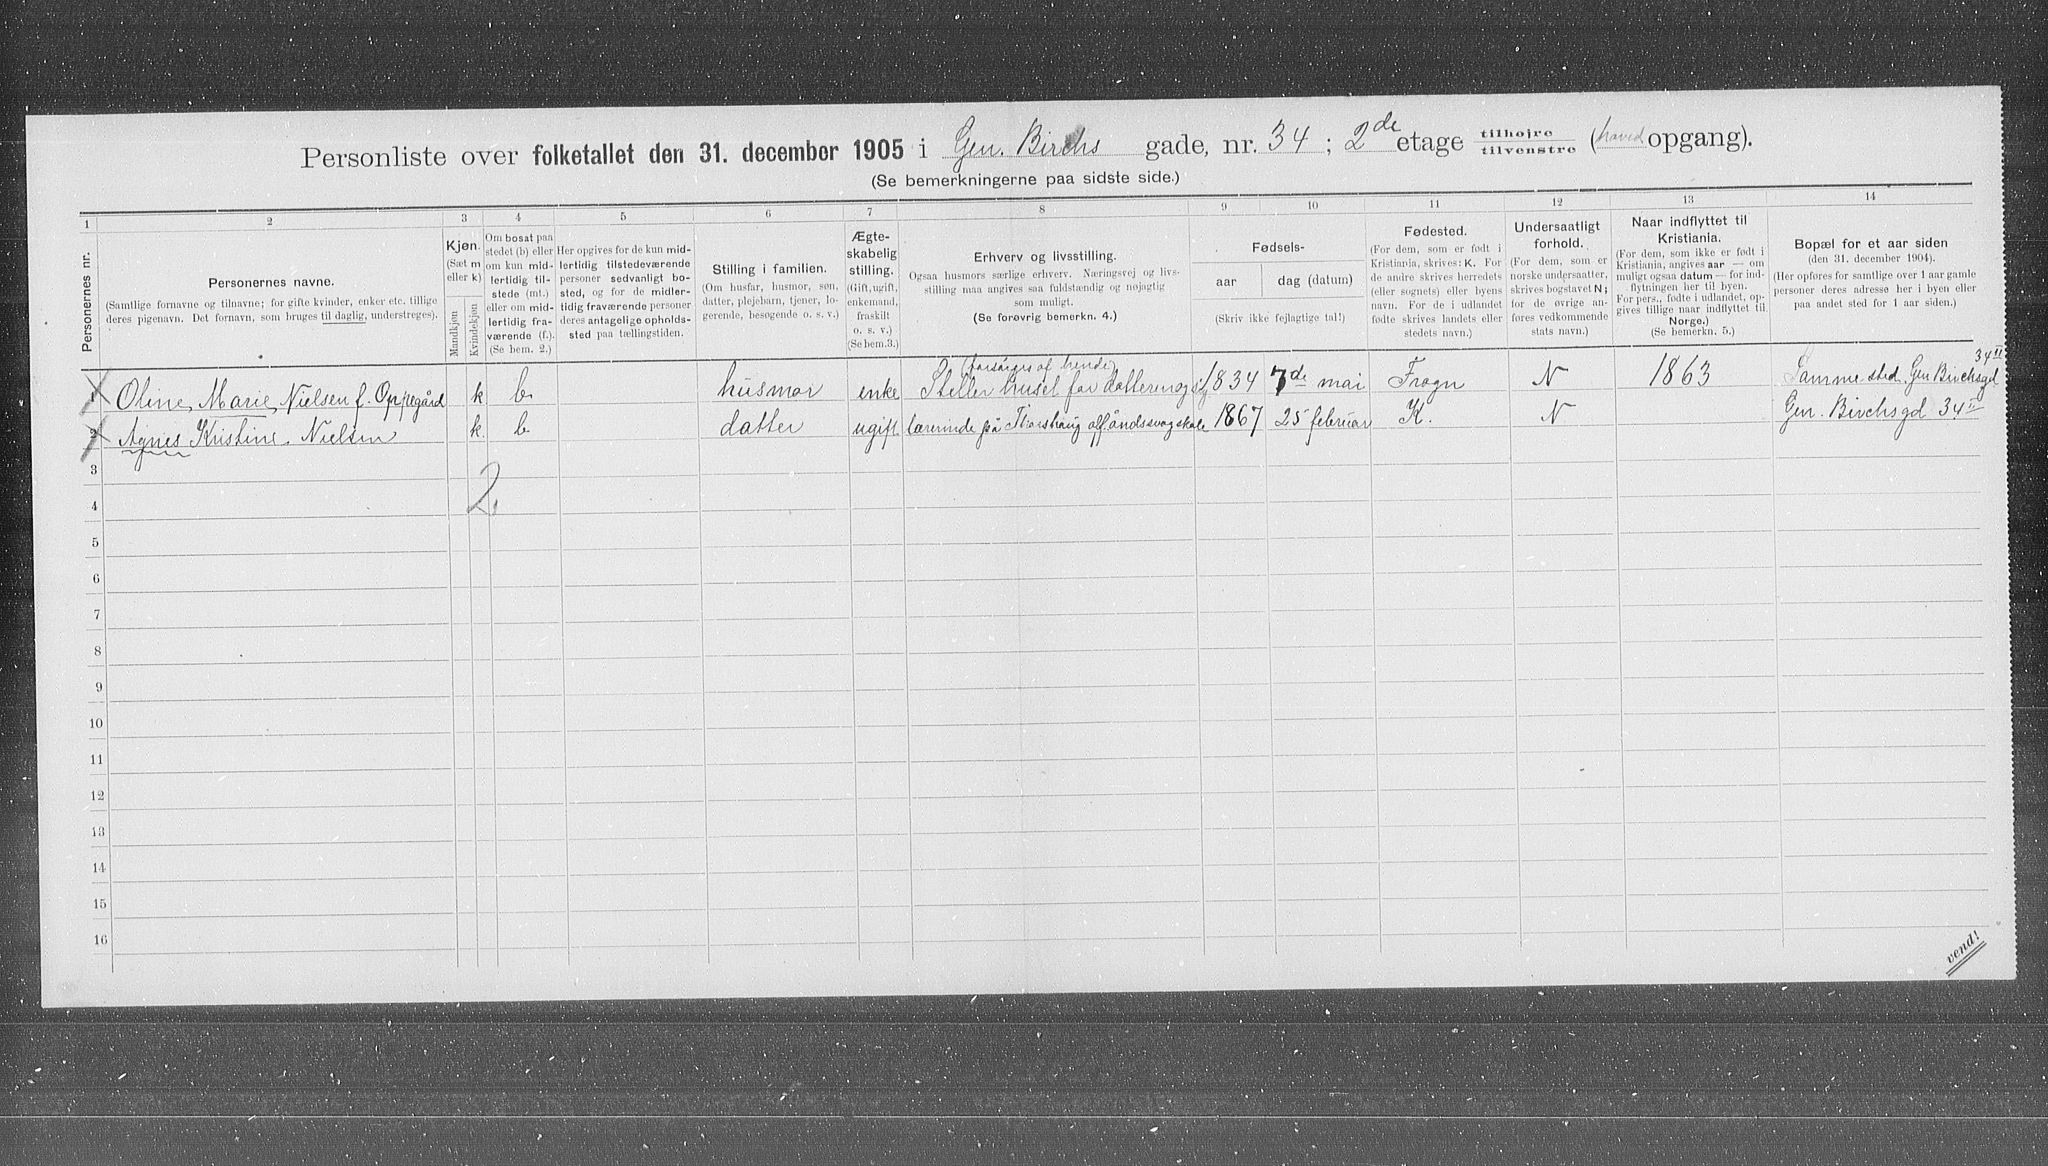 Personliste over folketallet den 31. december 1905 i Gen. Birchs gade, nr. 34 ; 2de etage tilhøjre tilvenstre (hoved opgang).
(Se bemerkningerne paa sidste side.)
1 2 3 4 5 6 7 8 9 10 11 12 13 14
Personernes nr.
Personernes navne.
(Samtlige fornavne og tilnavne; for gifte kvinder, enker etc. tillige
deres pigenavn. Det fornavn, som bruges til daglig, understreges).
Kjøn.
(Sæt m
eller k)
Mandkjøn
Kvindekjøn
Om bosat paa
stedet (b) eller
om kun mid-
lertidig til-
stede (mt.)
eller om mid-
lertidig fra-
værende (f.).
(Se bem. 2.)
Her opgives for de kun mid-
lertidig tilstedeværende
personer sedvanligt bo-
sted, og for de midler-
tidig fraværende personer
deres antagelige opholds-
sted paa tællingstiden.
Stilling i familien.
(Om husfar, husmor, søn,
datter, plejebarn, tjener, lo-
gerende, besøgende o. s. v.)
Ægte-
skabelig
stilling.
(Gift, ugift,
enkemand,
fraskilt
o. s. v.)
(Se bem.3.)
Erhverv og livsstilling.
Ogsaa husmors særlige erhverv. Næringsvej og livs-
stilling maa angives saa fuldstændig og nøjagtig
som muligt.
(Se forøvrig bemerkn. 4.)
Fødsels-
aar dag (datum)
(Skriv ikke fejlagtige tal!)
Fødested.
(For dem, som er født i
Kristiania, skrives: K. For
de andre skrives herredets
(eller sognets) eller byens
navn. For de i udlandet
fødte skrives landets eller
stedets navn.)
Undersaatligt
forhold.
(For dem, som er
norske undersaatter,
skrives bogstavet N;
for de øvrige an-
føres vedkommende
stats navn.)
Naar indflyttet til
Kristiania.
(For dem, som ikke er født i
Kristiania, angives aar — om
muligt ogsaa datum — for ind-
flytningen her til byen.
For pers., fødte i udlandet, op-
gives tillige naar indflyttet til
Norge.)
(Se bemerkn. 5.)
Bopæl for et aar siden
(den 31. december 1904).
(Her opføres for samtlige over 1 aar gamle
personer deres adresse her i byen eller
paa andet sted for 1 aar siden.)
(forsørges af hende) 34 II
1 Oline Marie Nielsen f. Oppegård k b husmor enke Steller huset for datteren 1834 7de mai Frogn N 1863 Samme sted Gen Birchsgd
2 Agnes Kristine Nielsen k b datter ugift lærerinde på Thorshaug åndssvagskole 1867 25 februar K. N Gen. Birchsgd 34 II
3
2.
4
5
6
7
8
9
10
11
12
13
14
15
16
vend!